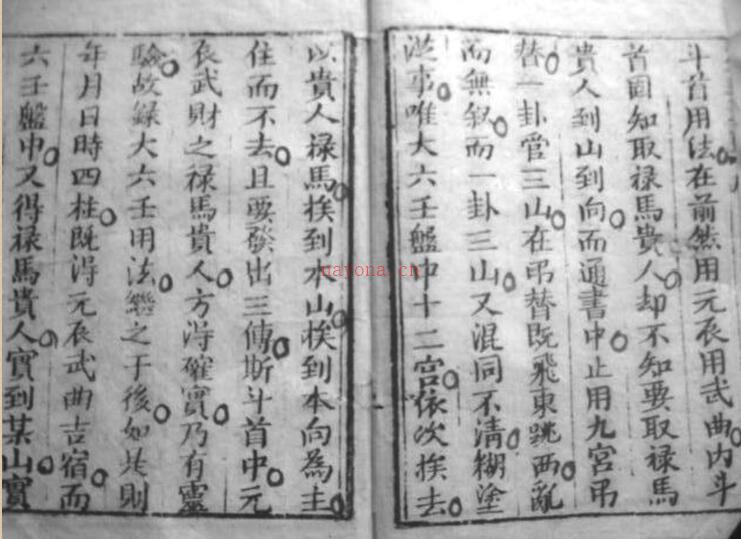 斗首用法在前然用元辰用武曲内斗
首固知取禄馬貴人却不知要取禄馬
貴人到山到向而通書中止用九宮吊
替一卦管三山在吊替既飛東跳西亂
而無叙而一卦三山又混同不清糊塗
從事唯大六壬盤中十二宮依次挨去
以貴人禄馬挨到本山挨到本向為主
住而不去且要發出三傳斯斗首中元
辰武財之禄馬貴人方得確實乃有靈
驗故録大六壬用法繼之于後如此則
年月日時四柱既得元辰武曲吉宿而
六壬盤中又得禄馬貴人實到某山實
nayona.cn